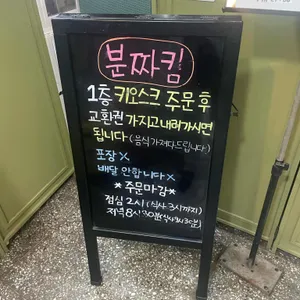 분짜킴
1층 키오스크 주문 후
교환권 가지고 내려가시면
됩니다 (음식 가져다드립니다!)
포장 X
배달 안합니다 X
* 주문마감 *
점심 2시 (식사 3시까지)
저녁 8시 30분 (식사 9시 30분)